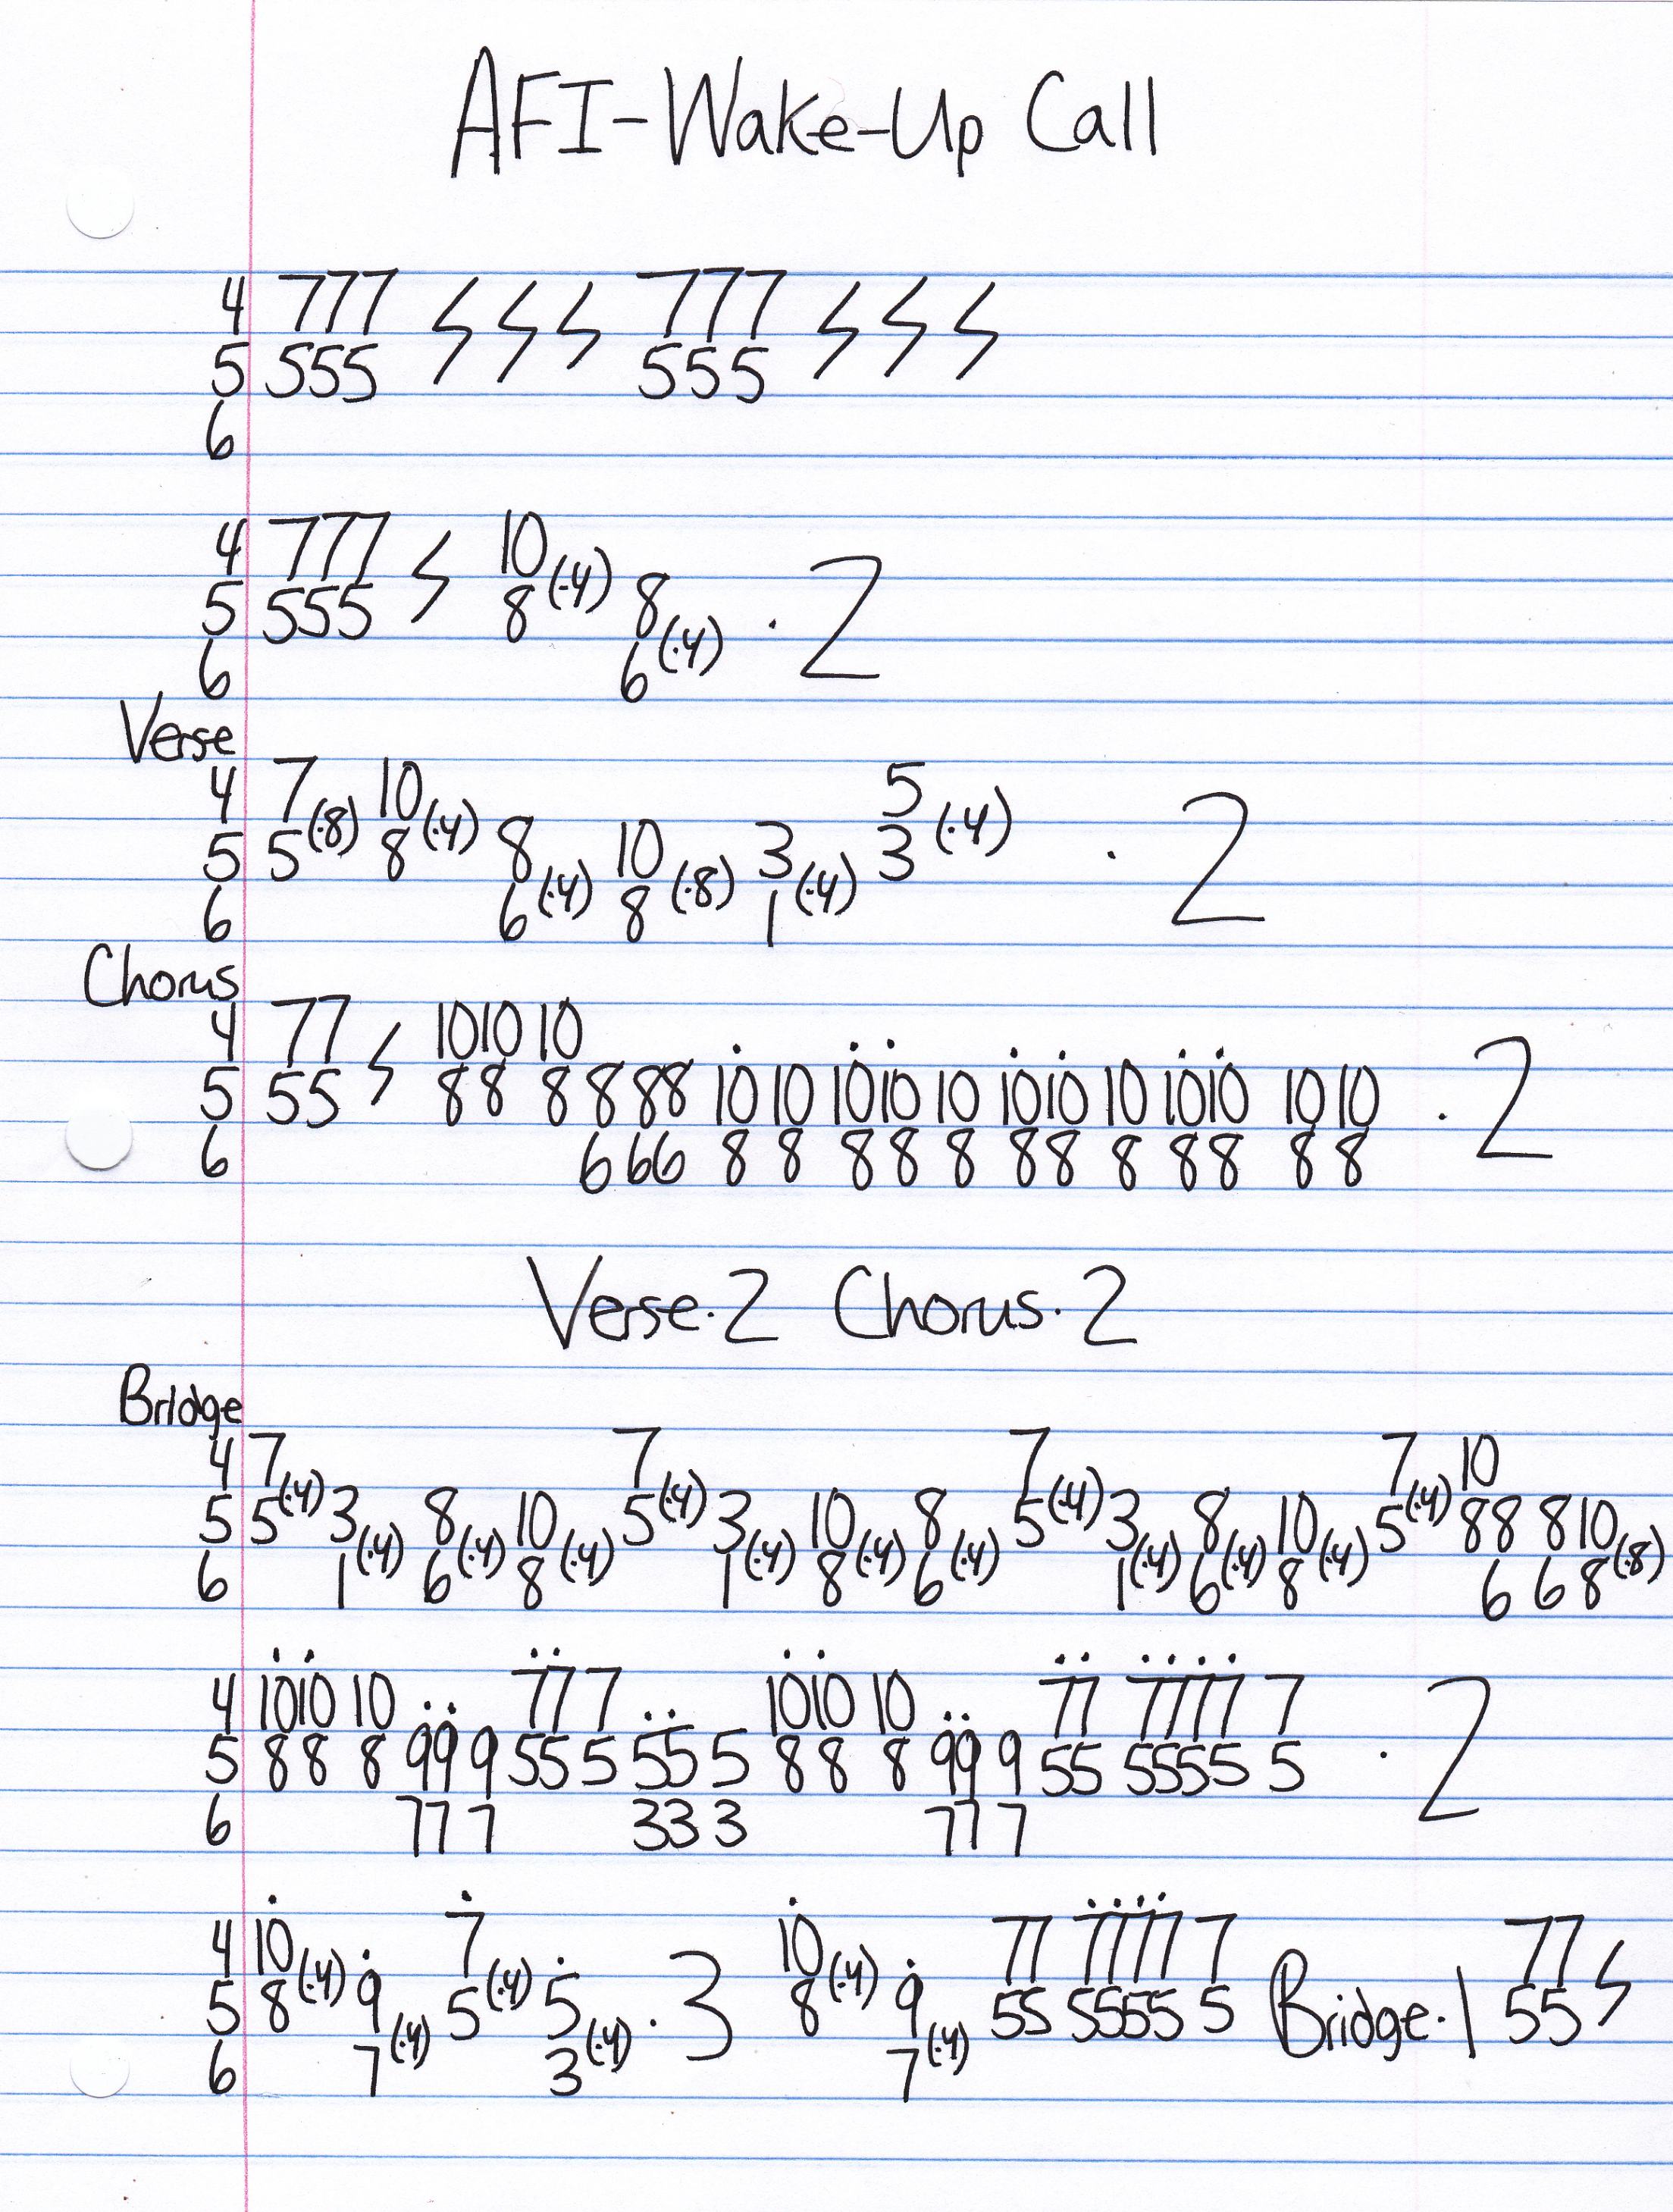 AFI-Wake-Up Call
4 777 ϟ ϟ ϟ 777 ϟ ϟ ϟ
5 555 555
6
4 777 ϟ 10
5 555 8(·4) 8 ·2
6 6(·4)
Verse
4 7 10 5
5 5(·8) 8(·4) 8 10 3 3(·4) ·2
6 6(·4) 8(·8) 1(·4)
Chorus
4 77 ϟ 1010 10
5 55 88 8 888 10 10 1010 10 1010 10 1010 10 10 ·2
6 666 8 8 88 8 88 8 88 8 8
Verse·2 Chorus·2
Bridge
4 7 7 7 7 10
5 5(·4) 3 8 10 5(·4) 3 10 8 5(·4) 3 8 10 5(·4) 88 810
6 1(·4) 6(·4) 8(·4) 1(·4) 8(·4) 6(·4) 1(·4) 6(·4) 8(·4) 6 6 8(·8)
4 1010 10 77 7 1010 10 77 7777 7
5 88 8 99 9 55 5 55 5 88 8 99 9 55 5555 5 ·2
6 77 7 33 3 77 7
4 10 7 10 77 7777 7 77
5 8(·4) 9 5(·4) 5 ·3 8(·4) 9 55 5555 5 Bridge·1 55 ϟ
6 7(·4) 3(·4) 7(·4)